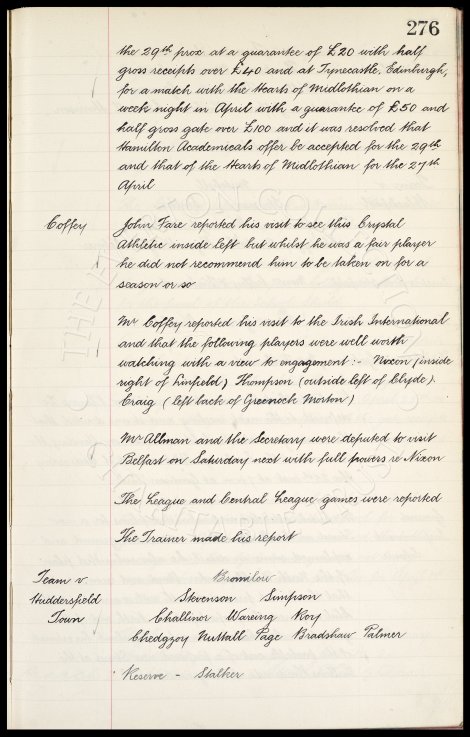 276
the 29th prox. at a guarantee of £20 with half
gross receipts over £40 and at Tynecastle, Edinburgh,
for a match with the Hearts of Midlothian on a
week night in April with a guarantee of £50 and
half gross gate over £100 and it was resolved that
Hamilton Academicals offer be accepted for the 29th
and that of the Hearts of Midlothian for the 27th
April
Coffey
John Fare reported his visit to see this Crystal
Athletic inside left but whilst he was a fair player
he did not recommend him to be taken on for a
season or so
Mr Coffey reported his visit to the Irish International
and that the following players were well worth
watching with a view to engagement :- Nixon (inside
right of Linfield) Thompson (outside left of Clyde).
Craig (left back of Greenock Morton)
Mr Allman and the Secretary were deputed to visit
Belfast on Saturday next with full powers re Nixon
The League and Central League games were reported
The Trainer made his report
Team v.
Huddersfield
Town
Bromilow
Stevenson Simpson
Challinor Wareing Roy
Chedgzoy Nuttall Page Bradshaw Palmer
Reserve - Stalker